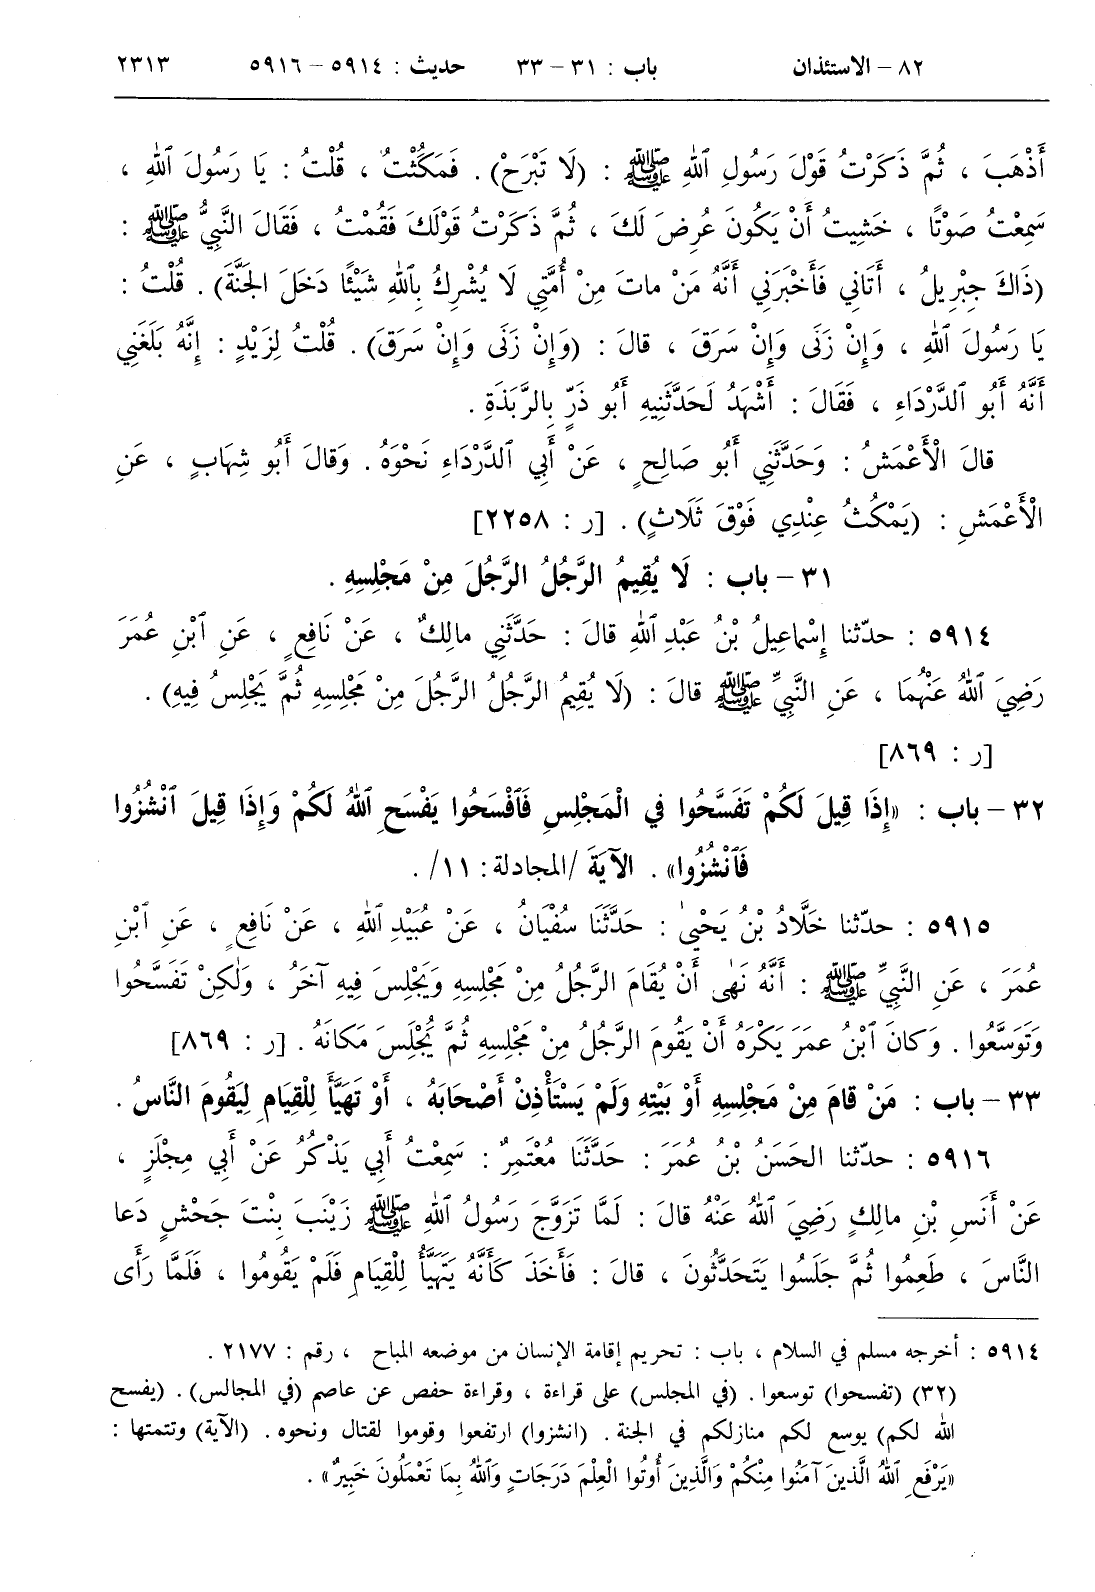 ٨٢ – الاستئذان باب : ٣١ – ٣٣ حديث : ٥٩١٤ – ٥٩١٦ ٢٣١٣
أَذْهَبَ ، ثُمَّ ذَكَرْتُ قَوْلَ رَسُولِ ٱللهِ ﷺ : (لَا تَبْرَحْ) . فَمَكَثْتُ ، قُلْتُ : يَا رَسُولَ ٱللهِ ،
سَمِعْتُ صَوْتًا ، خَشِيتُ أَنْ يَكُونَ عُرِضَ لَكَ ، ثُمَّ ذَكَرْتُ قَوْلَكَ فَقُمْتُ ، فَقَالَ النَّبِيُّ ﷺ :
(ذَاكَ جِبْرِيلُ ، أَتَانِي فَأَخْبَرَنِي أَنَّهُ مَنْ ماتَ مِنْ أُمَّتِي لَا يُشْرِكُ بِٱللهِ شَيْئًا دَخَلَ الجَنَّةَ) . قُلْتُ :
يَا رَسُولَ ٱللهِ ، وَإِنْ زَنَى وَإِنْ سَرَقَ ، قالَ : (وَإِنْ زَنَى وَإِنْ سَرَقَ) . قُلْتُ لِزَيْدٍ : إِنَّهُ بَلَغَنِي
أَنَّهُ أَبُو ٱلدَّرْدَاءِ ، فَقَالَ : أَشْهَدُ لَحَدَّثَنِيهِ أَبُو ذَرٍّ بِالرَّبَذَةِ .
قالَ الْأَعْمَشُ : وَحَدَّثَنِي أَبُو صَالِحٍ ، عَنْ أَبِي ٱلدَّرْدَاءِ نَحْوَهُ . وَقالَ أَبُو شِهَابٍ ، عَنِ
الْأَعْمَشِ : (يَمْكُثُ عِنْدِي فَوْقَ ثَلَاثٍ) . [ر : ٢٢٥٨]
٣١ – باب : لَا يُقِيمُ الرَّجُلُ الرَّجُلَ مِنْ مَجْلِسِهِ .
٥٩١٤ : حدّثنا إِسْماعِيلُ بْنُ عَبْدِ ٱللهِ قالَ : حَدَّثَنِي مالِكٌ ، عَنْ نَافِعٍ ، عَنِ ٱبْنِ عُمَرَ
رَضِيَ ٱللهُ عَنْهُمَا ، عَنِ النَّبِيِّ ﷺ قالَ : (لَا يُقِيمُ الرَّجُلُ الرَّجُلَ مِنْ مَجْلِسِهِ ثُمَّ يَجْلِسُ فِيهِ) .
[ر : ٨٦٩]
٣٢ – باب : «إِذَا قِيلَ لَكُمْ تَفَسَّحُوا فِي الْمَجْلِسِ فَٱفْسَحُوا يَفْسَحِ ٱللهُ لَكُمْ وَإِذَا قِيلَ ٱنْشُزُوا
فَٱنْشُزُوا» . الآيَةَ /المجادلة: ١١/ .
٥٩١٥ : حدّثنا خَلَّادُ بْنُ يَحْيىٰ : حَدَّثَنَا سُفْيَانُ ، عَنْ عُبَيْدِ ٱللهِ ، عَنْ نَافِعٍ ، عَنِ ٱبْنِ
عُمَرَ ، عَنِ النَّبِيِّ ﷺ : أَنَّهُ نَهٰى أَنْ يُقَامَ الرَّجُلُ مِنْ مَجْلِسِهِ وَيَجْلِسَ فِيهِ آخَرُ ، وَلٰكِنْ تَفَسَّحُوا
وَتَوَسَّعُوا . وَكانَ ٱبْنُ عمَرَ يَكْرَهُ أَنْ يَقُومَ الرَّجُلُ مِنْ مَجْلِسِهِ ثُمَّ يُجْلِسَ مَكانَهُ . [ر : ٨٦٩]
٣٣ – باب : مَنْ قامَ مِنْ مَجْلِسِهِ أَوْ بَيْتِهِ وَلَمْ يَسْتَأْذِنْ أَصْحَابَهُ ، أَوْ تَهَيَّأَ لِلْقِيَامِ لِيَقُومَ النَّاسُ .
٥٩١٦ : حدّثنا الحَسَنُ بْنُ عُمَرَ : حَدَّثَنَا مُعْتَمِرٌ : سَمِعْتُ أَبِي يَذْكُرُ عَنْ أَبِي مِجْلَزٍ ،
عَنْ أَنَسِ بْنِ مالِكٍ رَضِيَ ٱللهُ عَنْهُ قالَ : لَمَّا تَزَوَّجَ رَسُولُ ٱللهِ ﷺ زَيْنَبَ بِنْتَ جَحْشٍ دَعا
النَّاسَ ، طَعِمُوا ثُمَّ جَلَسُوا يَتَحَدَّثُونَ ، قالَ : فَأَخَذَ كَأَنَّهُ يَتَهَيَّأُ لِلْقِيَامِ فَلَمْ يَقُومُوا ، فَلَمَّا رَأَى
٥٩١٤ : أخرجه مسلم في السلام ، باب : تحريم إقامة الإنسان من موضعه المباح ، رقم : ٢١٧٧ .
(٣٢) (تفسحوا) توسعوا . (في المجلس) على قراءة ، وقراءة حفص عن عاصم (في المجالس) . (يفسح
الله لكم) يوسع لكم منازلكم في الجنة . (انشزوا) ارتفعوا وقوموا لقتال ونحوه . (الآية) وتتمتها :
«يَرْفَعِ ٱللهُ الَّذِينَ آمَنُوا مِنْكُمْ وَالَّذِينَ أُوتُوا الْعِلْمَ دَرَجَاتٍ وَٱللهُ بِمَا تَعْمَلُونَ خَبِيرٌ» .